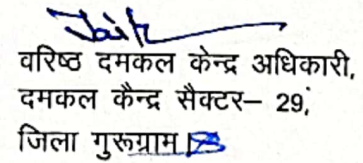 वरिष्ठ दमकल केन्द्र अधिकारी,
दमकल कैन्द्र सैक्टर– 29,
जिला गुरूग्राम